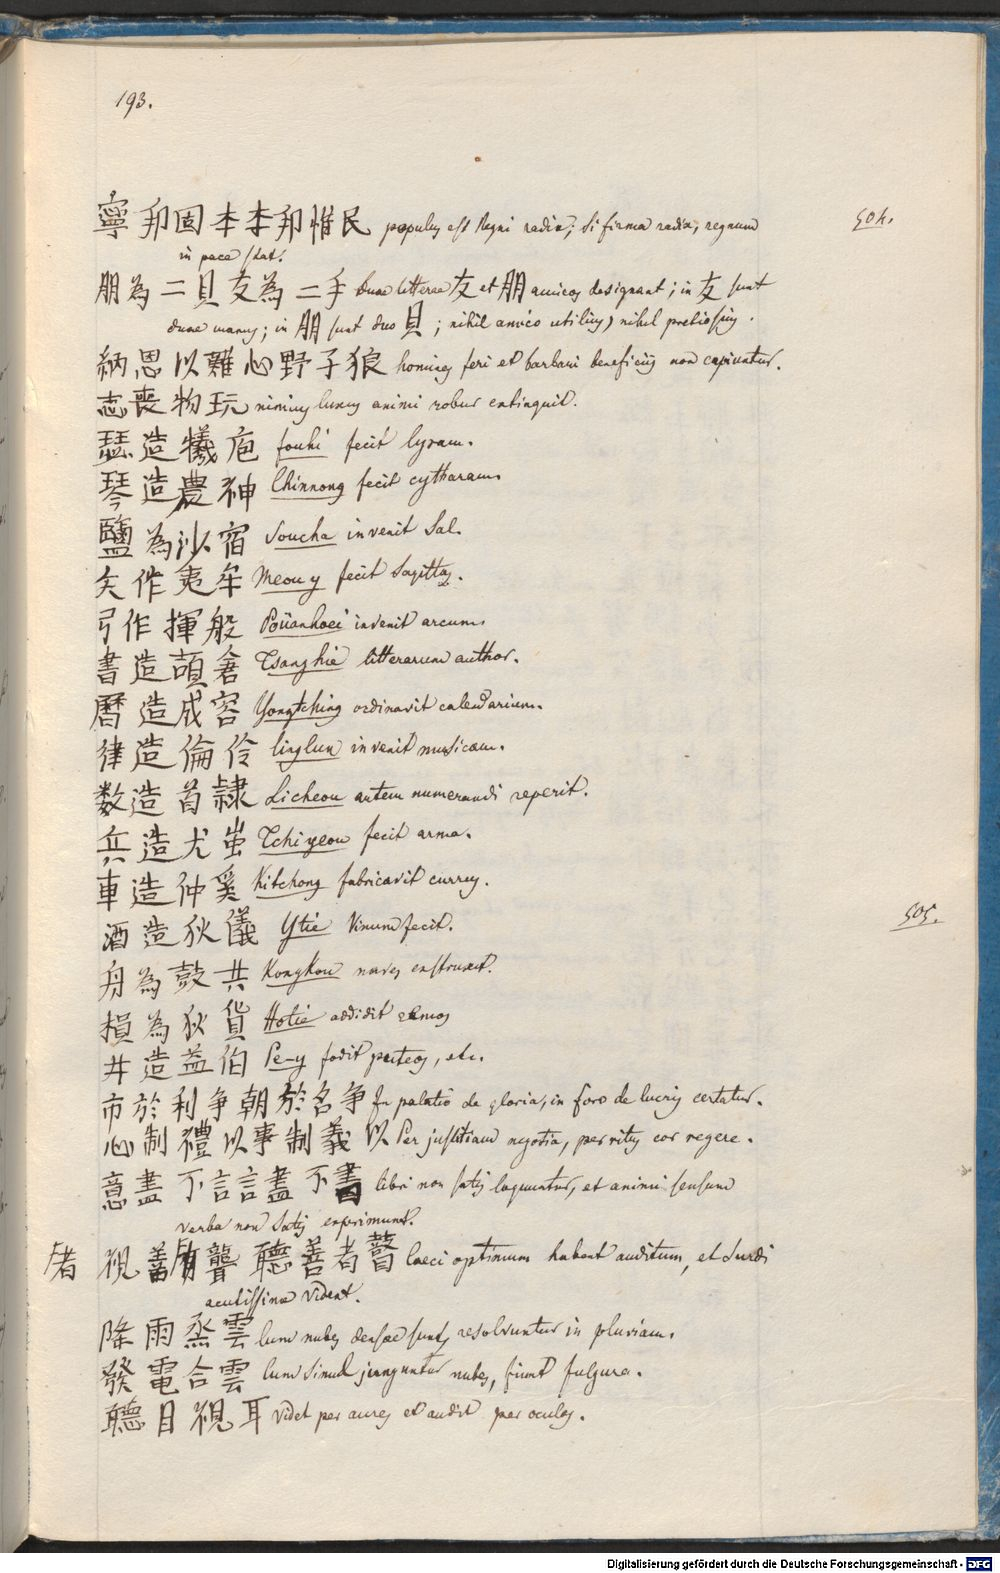 193.
504.
寧邦固本本邦惟民 populus est Regni radix; si firma radix, regnum
in pace stat.
朋為二貝友為二手 duae litterae 友 et 朋 amicos designant; in 友 sunt
duae manus; in 朋 sunt duo 貝; nihil amico utilius, nihil pretiosius.
納恩以難心野子狼 homines feri et barbari beneficiis non capiuntur.
志喪物玩 nimius luxus animi robur extinguit.
瑟造犧庖 fouhi fecit lyram.
琴造農神 Chinnong fecit cytharam
鹽為沙宿 Soucha invenit Sal.
矢作夷牟 Meou y fecit Sagittas.
弓作揮般 Pouanhoei invenit arcum.
書造頡倉 Tsanghie litterarum author.
曆造成容 Yongtching ordinavit calendarium.
律造倫伶 linglun invenit musicam.
数造首隸 Licheou artem numerandi reperit.
兵造尤蚩 Tchi yeou fecit arma.
車造仲奚 Kitchong fabricavit currus.
酒造狄儀 Ytié Vinum fecit.
505.
舟為鼓共 Kongkou naves enstruxit.
損為狄貨 Hotié addidit remos
井造益伯 Pe-y fodit puteos, etc.
市於利争朝於名争 In palatio de gloria, in foro de lucris certatur.
心制禮以事制義以 Per justitiam negotia, per ritus cor regere.
意盡不言言盡不書 libri non satis loquuntur, et animi sensum
verba non satis exprimunt.
者 視善聾聽善者瞽 Caeci optimum habent auditum, et surdi
acutissime vident.
降雨烝雲 Cum nubes densae sunt, resolvuntur in pluviam.
發電合雲 Cum simul junguntur nubes, fiunt fulgura.
聽目視耳 Videt per aures et audit per oculos.
Digitalisierung gefördert durch die Deutsche Forschungsgemeinschaft - DFG